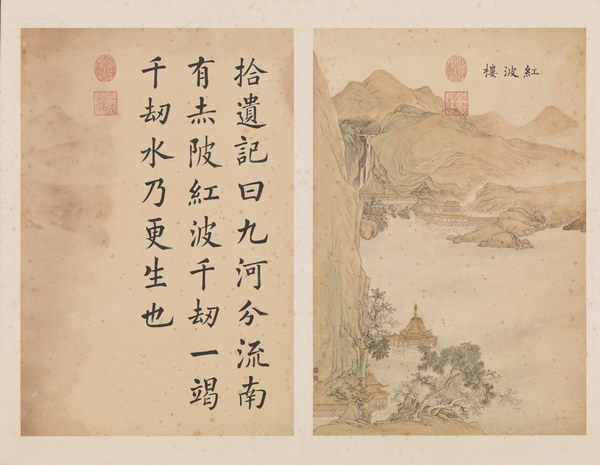 紅波樓
拾遺記曰九河分流南
有赤陂紅波千刼一竭
千刼水乃更生也